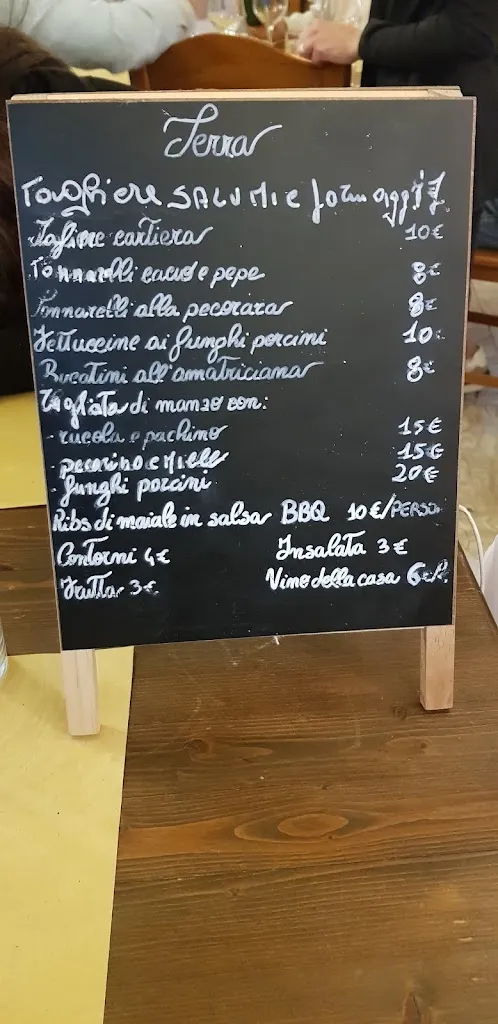 Terra
Tagliere SALUMI e formaggi 7
Tagliere cantiera 10€
Tonnarelli cacio e pepe 8€
Tonnarelli alla pecorara 8€
Fettuccine ai funghi porcini 10
Bucatini all'amatriciana 8€
Tagliata di manzo con:
- rucola e pachino 15€
- pecorino e Miele 15€
- funghi porcini 20€
Ribs di maiale in salsa BBQ 10€/PERSO
Contorni 4€ Insalata 3€
Frutta 3€ Vino della casa 6€